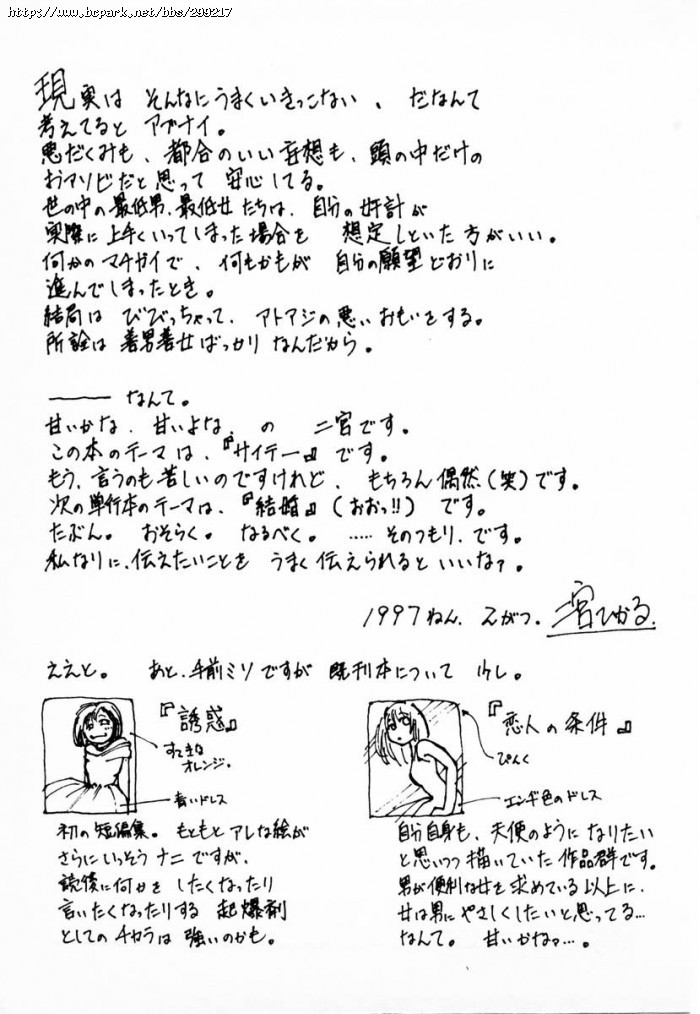 https://www.bcpark.net/bbs/299217
現実は そんなにうまくいきっこない、 だなんて
考えてると アブナイ。
悪だくみも、都合のいい妄想も、頭の中だけの
おアソビだと思って 安心してる。
世の中の最低男、最低女たちは、自分の奸計が
実際に上手くいってしまった場合を 想定しといた方がいい。
何かのマチガイで、何もかもが 自分の願望どおりに
進んでしまったとき。
結局は びびっちゃって、アトアジの悪いおもいをする。
所詮は 善男善女ばっかり なんだから。
――― なんて。
甘いかな、甘いよな、の 二宮です。
この本のテーマは、『サイテー』 です。
もう、言うのも苦しいのですけれど、 もちろん偶然(笑)です。
次の単行本のテーマは、『結婚』(おおっ!!) です。
たぶん。 おそらく。 なるべく。 ……そのつもり、です。
私なりに、伝えたいことを うまく伝えられると いいなァ。
1997ねん、2がつ。二宮ひかる.
ええと。 あと、手前ミソですが 既刊本について 少し。
『誘惑』
すてきな
オレンジ。
青いドレス
初の短編集。もともとアレな絵が
さらにいっそう ナニですが、
読後に何かを したくなったり
言いたくなったりする 起爆剤
としてのチカラは 強いのかも。
『恋人の条件』
ぴんく
エンジ色のドレス
自分自身も、天使のように なりたい
と思いつつ 描いていた 作品群です。
男が便利な女を 求めている以上に、
女は男に やさしくしたいと思ってる…
なんて。 甘いかなァ…。